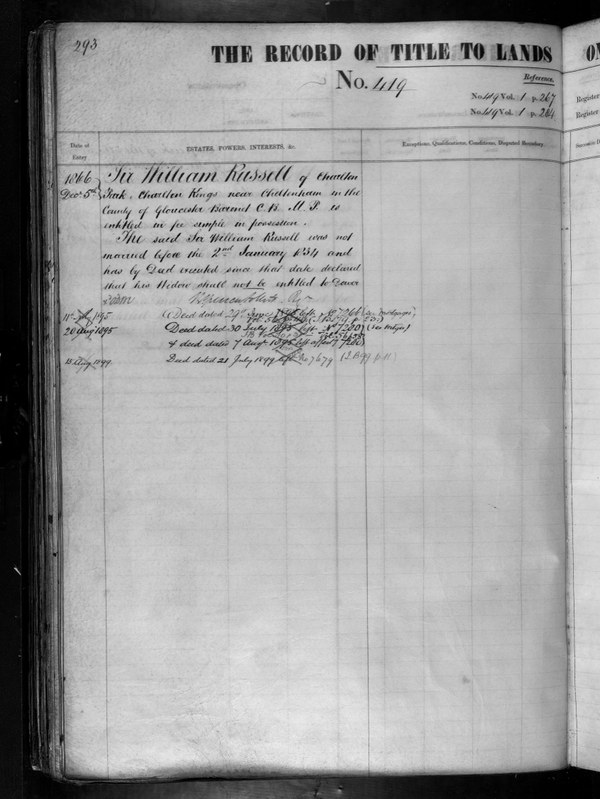 293
THE RECORD OF TITLE TO LANDS
No. 419
Reference.
No. 419 Vol. 1 p. 267
No. 419 Vol. 1 p. 284
Register
Register
Date of Entry
ESTATES, POWERS, INTERESTS, &c.
Exceptions, Qualifications, Conditions, Disputed Boundary
1866 Sir William Russell of Charlton
Decr. 5th Park, Charlton Kings near Cheltenham in the
County of Gloucester Baronet C.B. M.P. is
entitled in fee simple in possession.
The said Sir William Russell was not
married before the 2nd January 1834 and
has by Deed executed since that date declared
that his Widow shall not be entitled to Dower
1895 Deed dated 29 1895 left No 7066
20 Augt 1895 Deed dated 30 July 1895 left No 7200
& deed dated 7 Augt. 1895 left 7200
18 Aug 1899 Deed dated 21 July 1899 left No 7679